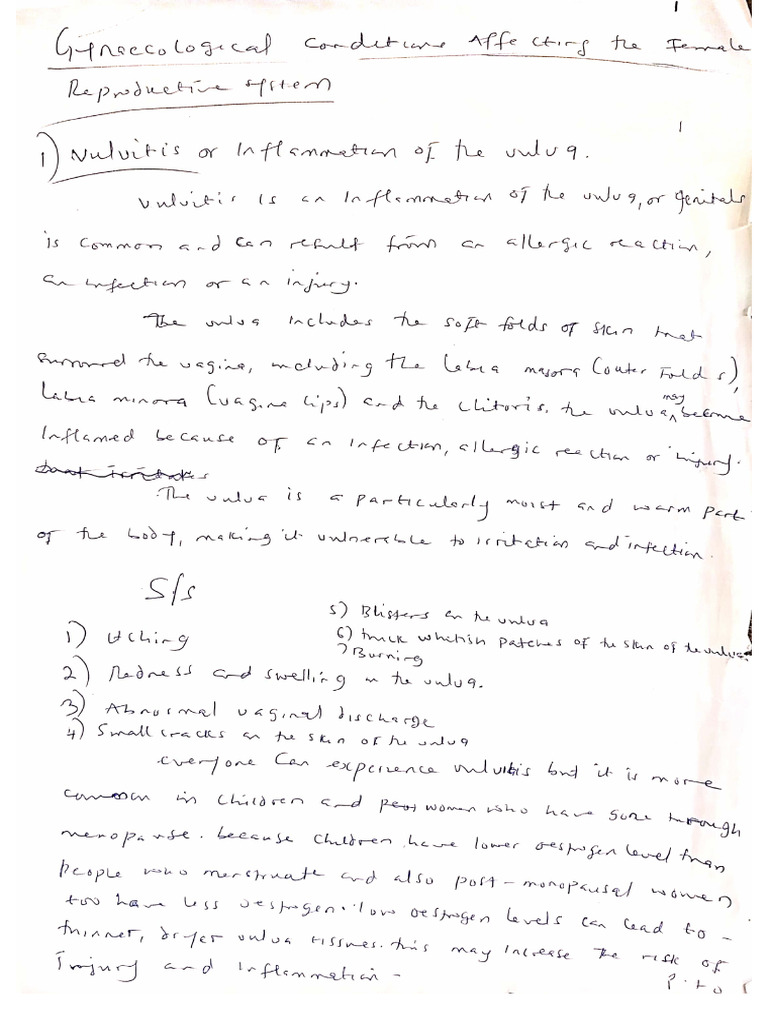 1
Gynaecological conditions Affecting the Female
Reproductive system
1
1) Vulvitis or Inflammation of the vulva.
Vulvitis is an Inflammation of the vulva, or genitals
is common and can result from an allergic reaction,
an infection or an injury.
The vulva includes the soft folds of skin that
surround the vagina, including the labia majora (outer folds),
labia minora (vagina lips) and the clitoris. the vulva may become
Inflamed because of an infection, allergic reaction or injury.
The vulva is a particularly moist and warm part
of the body, making it vulnerable to irritation and infection.
S/s
5) Blisters on the vulva
1) Itching
6) thick whitish patches of the skin of the vulva.
7 Burning
2) Redness and swelling on the vulva.
3) Abnormal vaginal discharge
4) Small cracks on the skin of the vulva
everyone can experience vulvitis but it is more
common in children and women who have gone through
menopause. because children have lower oestrogen level than
people who menstruate and also post-monopausal women
too have less oestrogen. low oestrogen levels can lead to -
thinner, dryer vulva tissues. this may increase the risk of
Injury and inflammation -
P.T.O